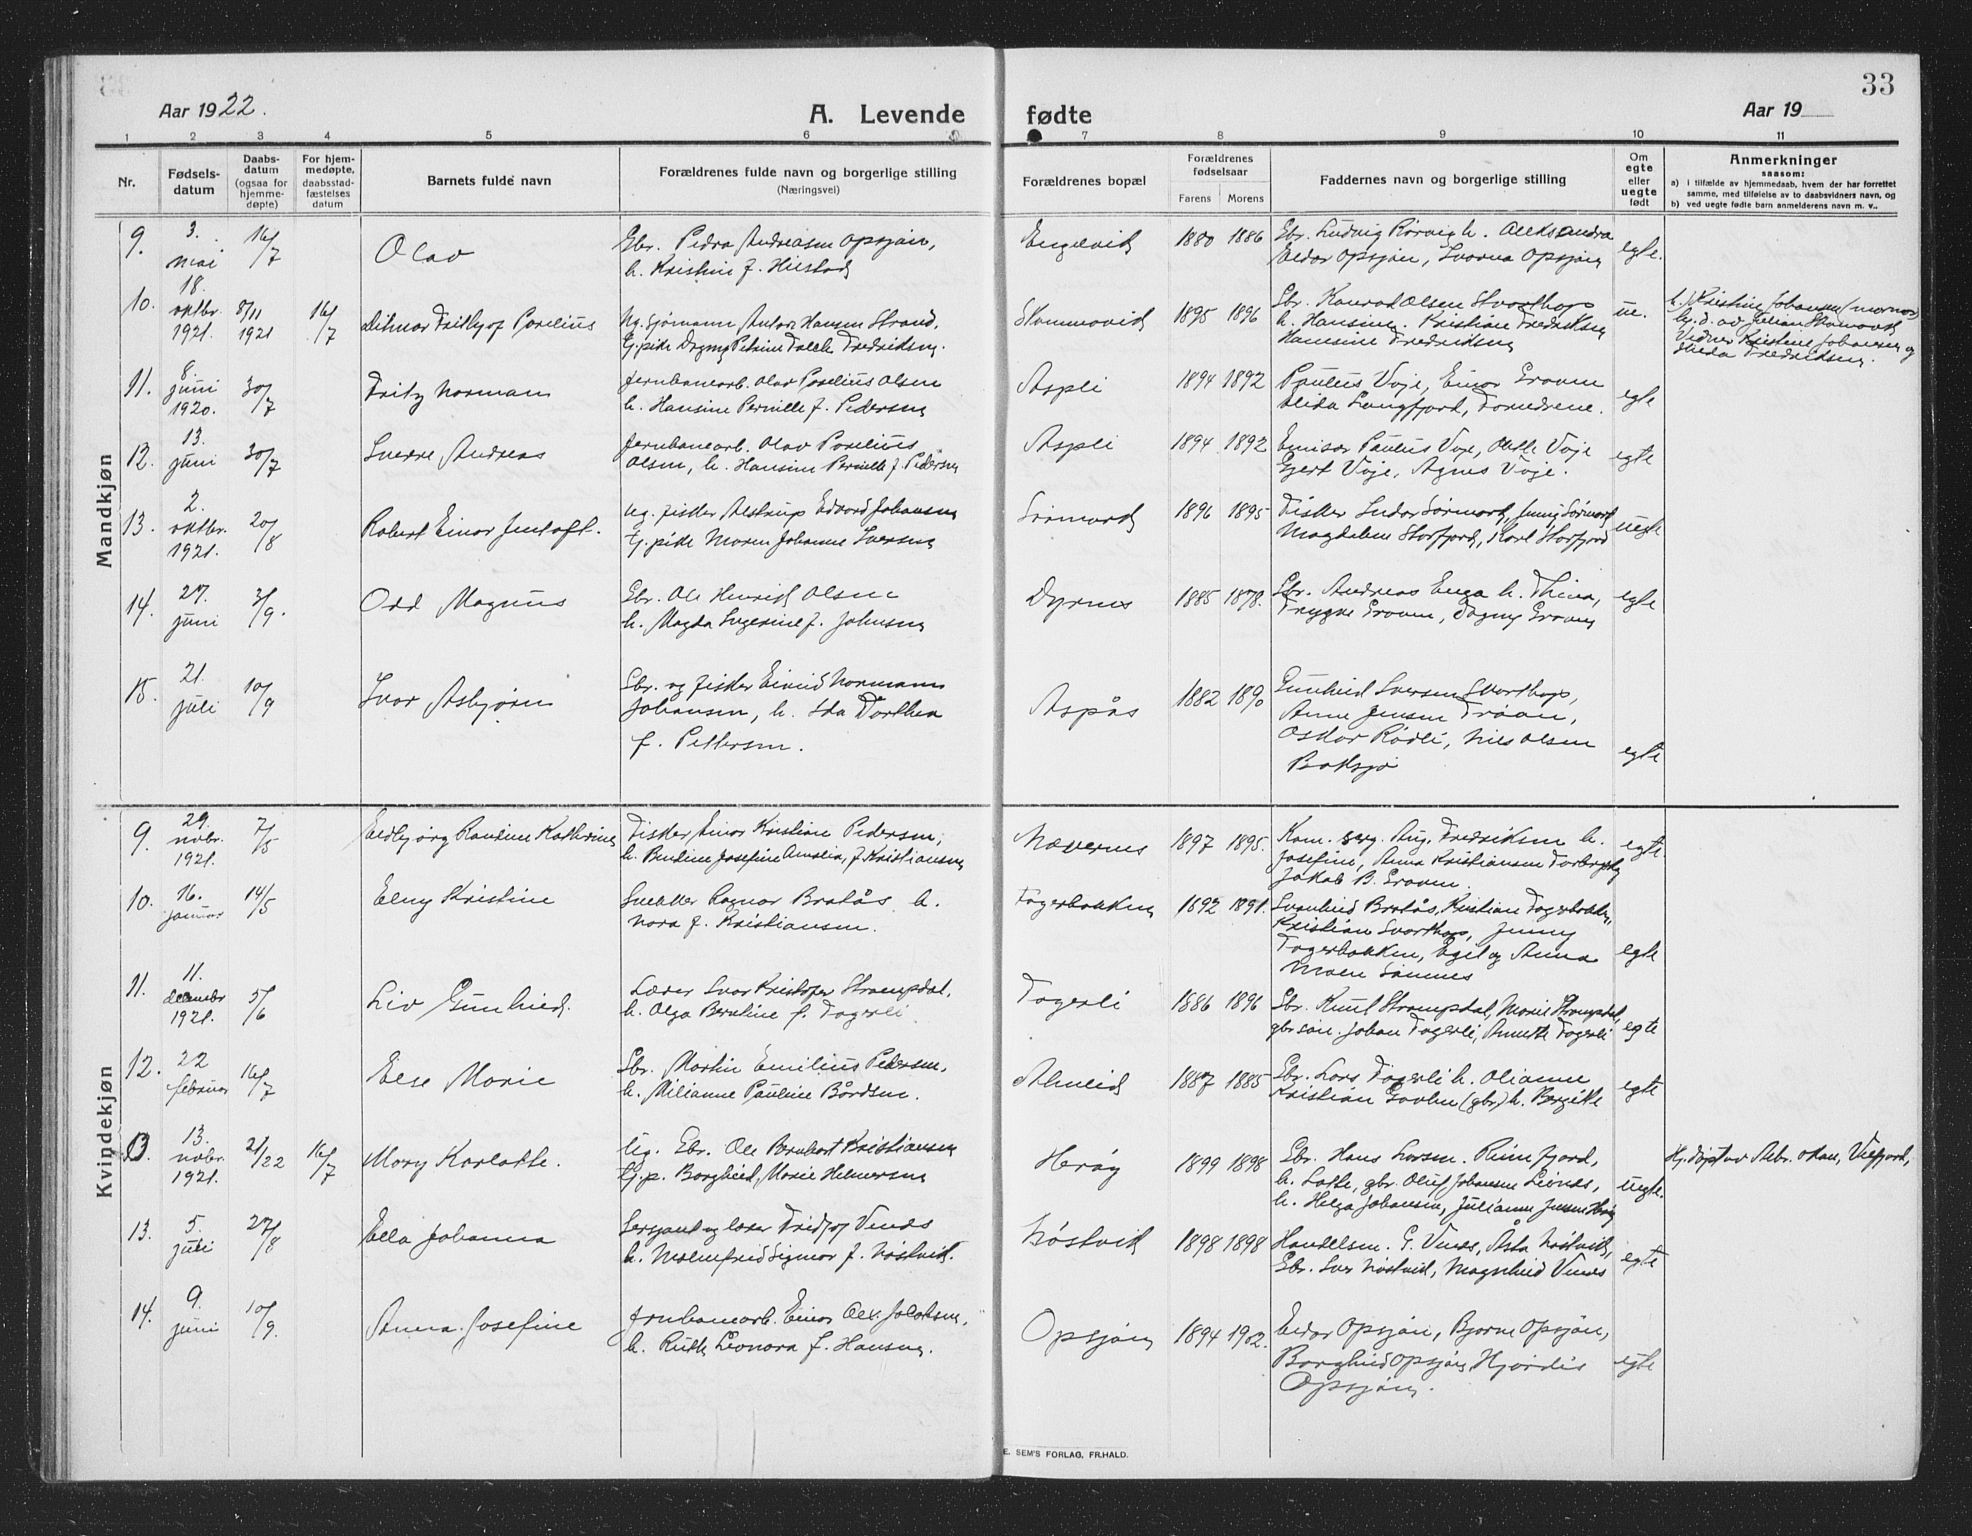 33
Aar 1922.
A. Levende fødte
Aar 19
1 2 3 4 5 6 7 8 9 10 11
Nr.
Fødsels-
datum
Daabs-
datum
(ogsaa for
hjemme-
døpte)
For hjem-
medøpte,
daabsstad-
fæstelses
datum
Barnets fulde navn
Forældrenes fulde navn og borgerlige stilling
(Næringsvei)
Forældrenes bopæl
Forældrenes
fødselsaar
Farens Morens
Faddernes navn og borgerlige stilling
Om
egte
eller
uegte
født
Anmerkninger
saasom:
a) i tilfælde av hjemmedaab, hvem der har forrettet
samme, med tilføielse av to daabsvidners navn, og
b) ved uegte fødte barn anmelderens navn m. v.,
Mandkjøn
9. 3. mai 16/7 Olav
Gbr. Pedra Andreasen Opsjøn,
h. Kristine f.
1880 1886
Gbr. Ludvig Rørvig h. Aleksandra
Eidar Opsjøn, Opsjøn
egte.
10. 18. oktbr. 1921. 8/11 1921 16/7 Ditmar Fritjof Porelius
Ug. Sjømann Anton Hansen Strand,
G.pike Dagny Petrine Fredriksen.
1895 1896
Gbr. Konrad Olsen
h. Hansine. Kristian Fredriksen
Hansine Fredriksen
ue.
Kristine Johansen (mormor)
Vidner Kristine Johansen og
Fredriksen.
11. 8. juni 1920. 30/7 Fritz Norman
Jernbanearb. Olav Porelius Olsen
h. Hansine Pernille f. Pedersen
Aspli
1894 1892
Paulus Voje, Einar Groven
Alida Langfjord, Forældrene.
egte
12. 13. juni 30/7 Sverre Andreas
Jernbanearb. Olav Porelius
Olsen, h. Hansine Pernille f. Pedersen
Aspli
1894 1892
Paulus Voje, Voje
Gjert Voje, Agnes Voje.
egte
13. 2. oktbr. 1921. 20/8 Robert Einar Jentoft.
ug. fisker Alstrup Edvard Johansen
G.pike Maren Johanne Iversen
Sørmark
1896 1895
Fisker Indar Sørmark, Jenny Sørmark
Magdalene Storfjord, Karl Storfjord
uegte
14. 27. juni 3/9. Odd Magnus
Gbr. Ole Henrik Olsen
h. Magda Ingerine f. Johnsen
Dyrnes
1885 1878.
Gbr. Andreas Enga h. Thina,
Trygve Groven, Dagny Groven
egte
15. 21. juli 10/9 Ivar Asbjørn
Gbr. og fisker Eivind Normann
Johansen, h. Ida Dorthea
f. Pettersen.
Aspås
1882 1890
Gunhild Iversen
Anne Jensen Trøan,
Oskar Rødli, Nils Olsen
Baksjø
egte
Kvindekjøn
9. 29. novbr. 1921. 7/5 Eldbjørg Pauline Kathrine
Fisker Einar Kristian Pedersen,
h. Bentine Josefine Amalia, f. Kristiansen
Nævernes
1897 1895.
Kom. Aug. Fredriksen h.
Josefine, Anna Kristiansen
Jakob B. Groven.
egte.
10. 16. januar 14/5 Elny Kristine
Snekker Ragnar Bratås h.
Nora f. Kristiansen.
Fagerbakken
1892 1891.
Svanhild Bratås, Kristian Fagerbakken,
Kristian Svarthop, Jenny
Fagerbakken, Egil og Anna
Moen Sømnes
egte
11. 11. decembr 1921. 5/6 Liv Gunhild.
Lærer Ivar Kristofer Strompdal,
h. Olga Berntine f. Fagerli
Fagerli
1886 1896
Gbr. Knut Strompdal, Marie Strompdal,
gbr søn. Johan Fagerli, Annette Fagerli
egte
12. 22 februar 16/7 Else Marie
Gbr. Martin Emilius Pedersen,
h. Milianne Pauline Bårdsen.
Almlid
1887 1885
Gbr. Lars Fagerli h. Olianne
Kristian (gbr) h. Bergitte
egte
13. 13. novbr. 1921. 2/1 22 16/7 Mary Karlotte.
Ug. Gbr. Ole Bernhart Kristiansen
G.p. Borghild, Marie Helmersen
Herøy
1899 1898
Gbr. Hans Larsen. Rimfjord,
h. Lotte, gbr. Oluf Johansen
h. Helga Johansen, Julianne Jensen
uegte.
Hj. døpt av
13. 5. juli 27/8 Ella Johanna
Sersjant og lærer Fridtjof Vendes
h. Malmfrid Sigmor f. Nøstvik.
Nøstvik
1898 1898
Handelsm. G. Vendes, Åsta Nøstvik,
Gbr. Iver Nøstvik, Magnhild Vendes
egte
14. 9. juni 10/9. Anna Josefine
Jernbanearb. Einar Alex. Jacobsen,
h. Ruth Leonora f. Hansen.
Opsjøn
1894 1902.
Eidar Opsjøn, Bjarne Opsjøn,
Borghild Opsjøn, Hjørdis
Opsjøn.
egte
E. SEM'S FORLAG, FR.HALD.